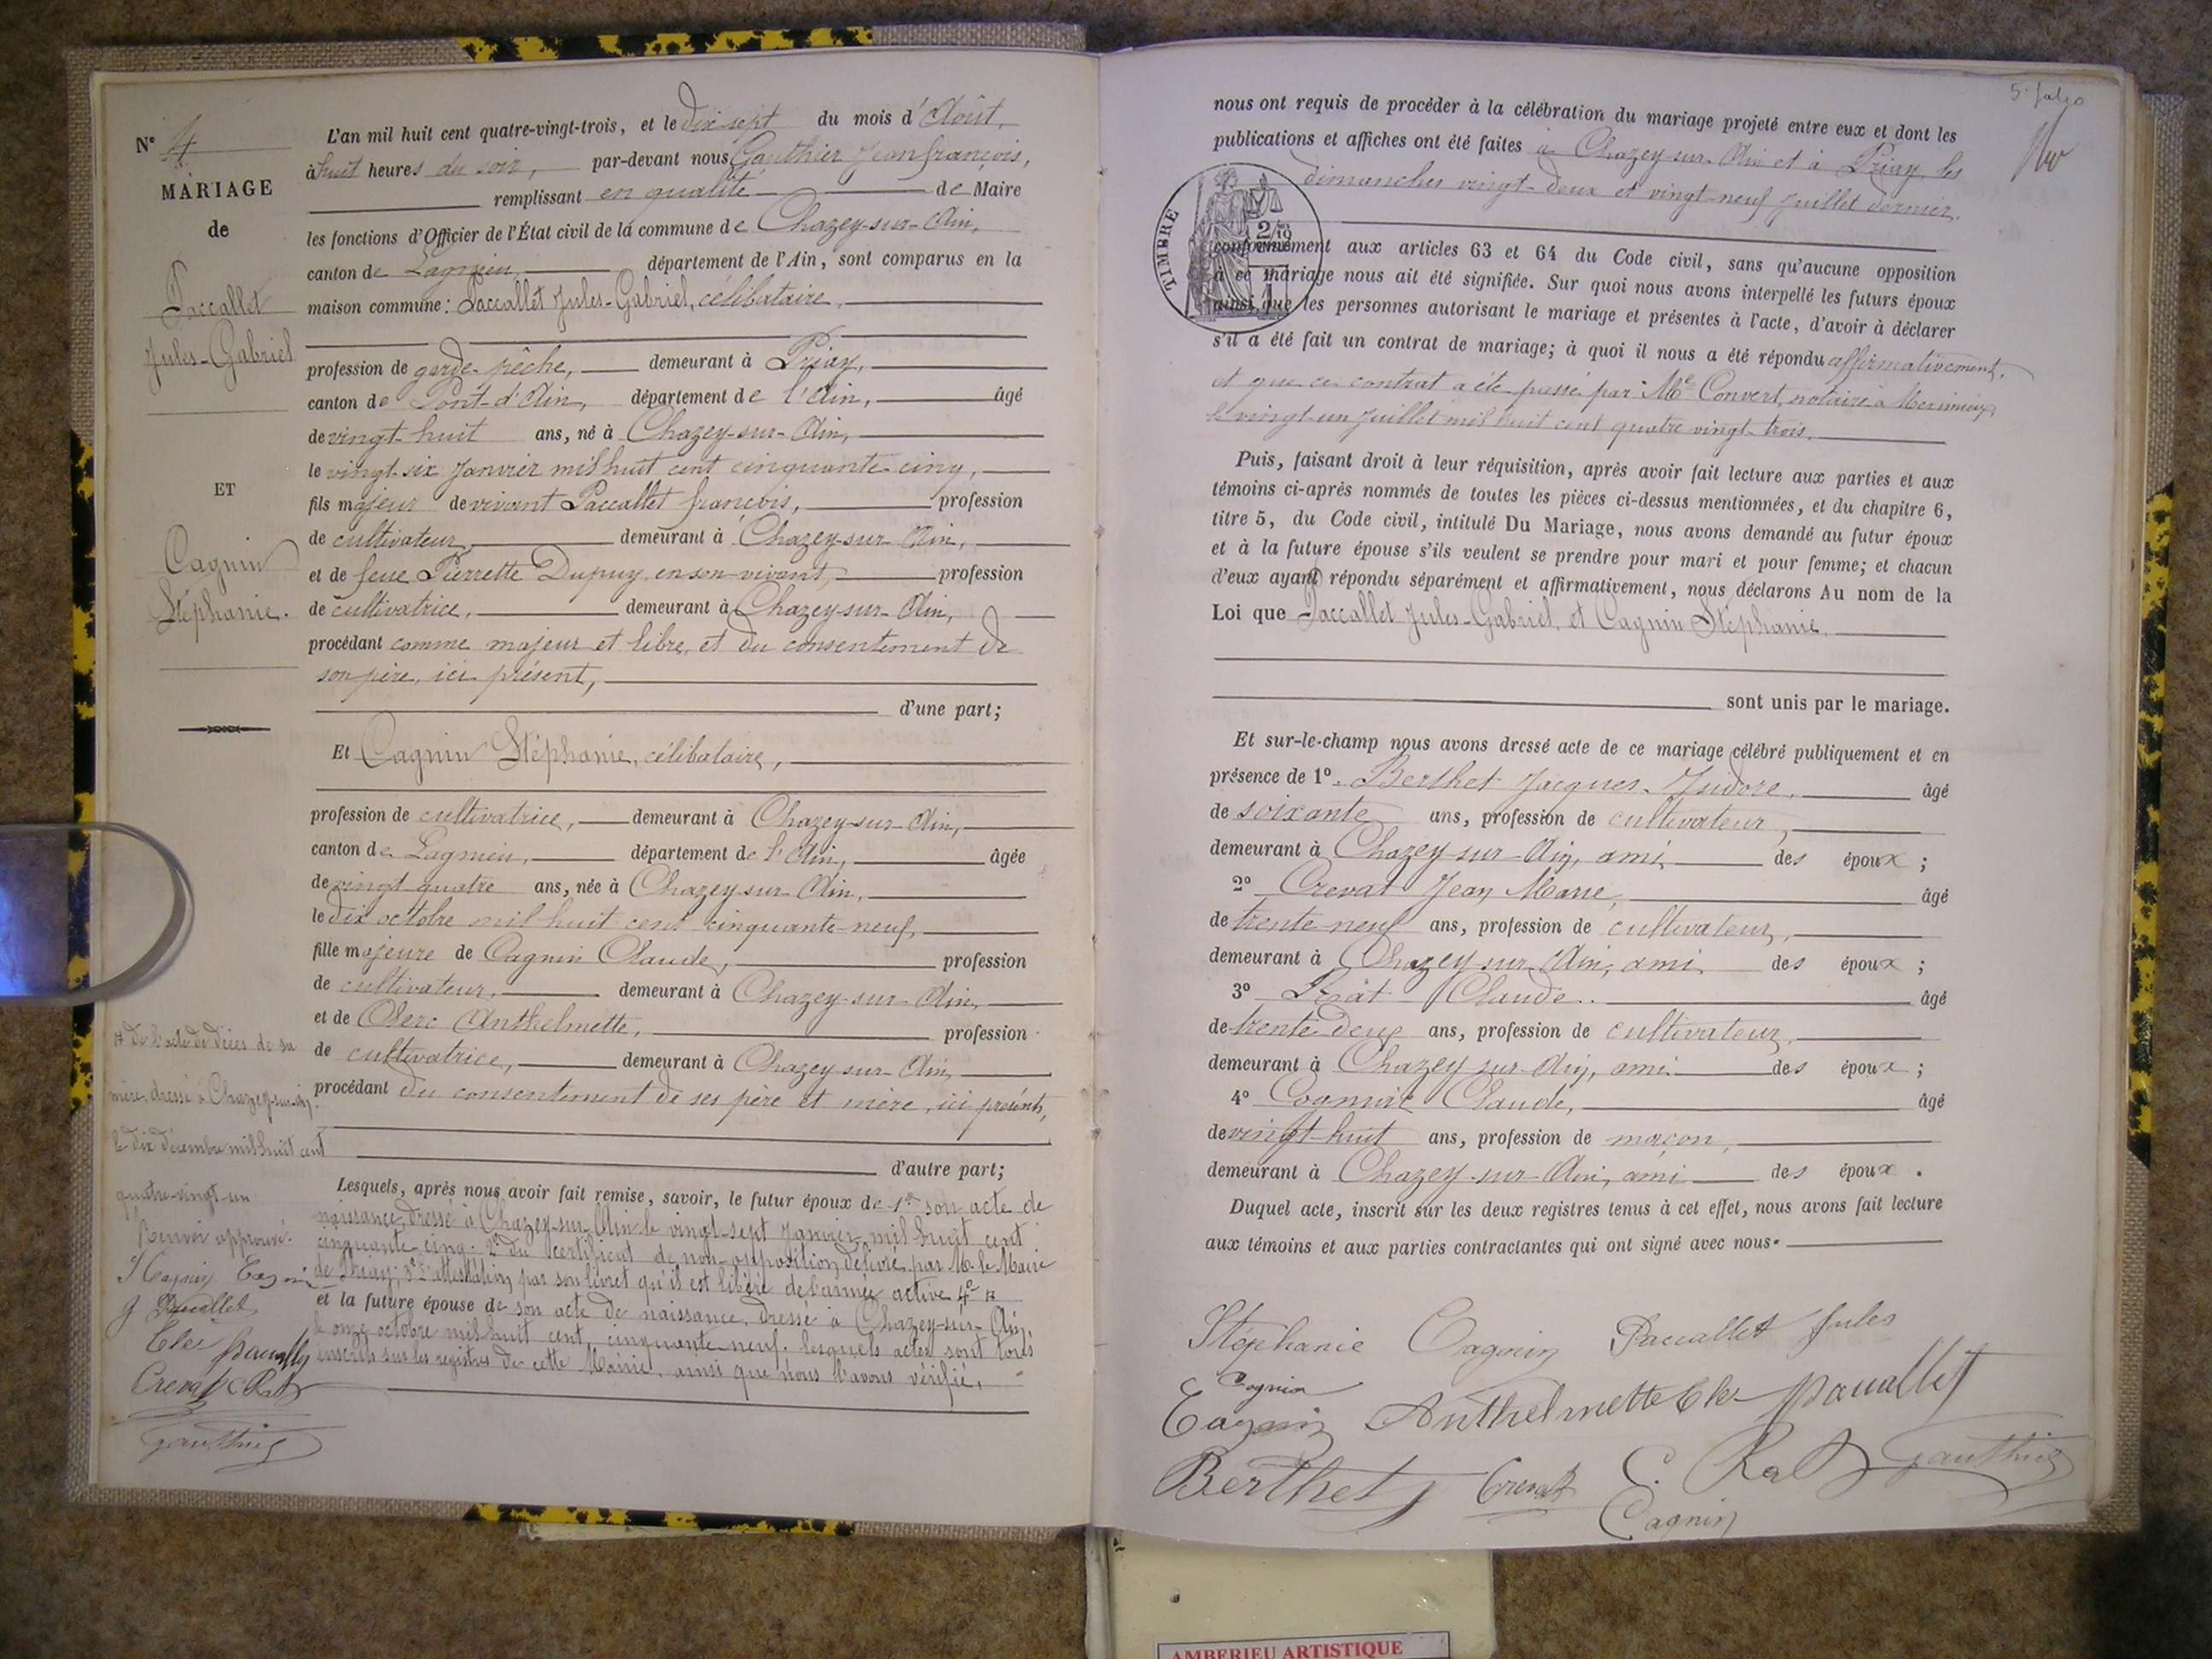 N° 4
MARIAGE
de
Paccallet
Jules-Gabriel
ET
Cagnin
Stéphanie.
L'an mil huit cent quatre-vingt-trois, et le dix sept du mois d'Août,
à huit heures du soir, par-devant nous Gauthier Jean françois,
remplissant en qualité de Maire
les fonctions d'Officier de l'État civil de la commune de Chazey-sur-Ain,
canton de Lagnieu, département de l'Ain, sont comparus en la
maison commune: Paccallet Jules-Gabriel, célibataire,
profession de garde-pêche, demeurant à Priay,
canton de Pont-d'Ain, département de l'Ain, âgé
de vingt-huit ans, né à Chazey-sur-Ain,
le vingt-six Janvier mil huit cent cinquante cinq,
fils majeur de vivant Paccallet françois, profession
de cultivateur, demeurant à Chazey-sur-Ain,
et de feue Pierrette Dupuy, en son vivant, profession
de cultivatrice, demeurant à Chazey-sur-Ain,
procédant comme majeur et libre, et du consentement de
son père, ici présent,
d'une part;
Et Cagnin Stéphanie, célibataire,
profession de cultivatrice, demeurant à Chazey-sur-Ain,
canton de Lagnieu, département de l'Ain, âgée
de vingt quatre ans, née à Chazey-sur-Ain,
le dix octobre mil huit cent cinquante-neuf,
fille majeure de Cagnin Claude, profession
de cultivateur, demeurant à Chazey-sur-Ain,
et de Clerc Anthelmette, profession
de cultivatrice, demeurant à Chazey-sur-Ain,
procédant du consentement de ses père et mère, ici présents,
d'autre part;
Lesquels, après nous avoir fait remise, savoir, le futur époux de 1° son acte de
naissance, dressé à Chazey-sur-Ain le vingt-sept Janvier mil huit cent
cinquante-cinq. 2° du certificat de non-opposition délivré par M. le Maire
de Priay; 3° l'attestation par son livret qu'il est libéré de l'armée active 4°
et la future épouse de son acte de naissance, dressé à Chazey-sur-Ain,
le onze octobre mil huit cent cinquante-neuf. lesquels actes sont tous
inscrits sur les registres de cette Mairie, ainsi que nous l'avons vérifié.
de l'acte de décès de sa
mère, dressé à Chazey-sur-Ain
le dix décembre mil huit cent
quatre-vingt-un
Renvoi approuvé.
S Cagnin Cagnin
J Paccallet
Cler Paccallet
Crevat C Rat
Gauthier
5e folio
nous ont requis de procéder à la célébration du mariage projeté entre eux et dont les
publications et affiches ont été faites à Chazey-sur-Ain et à Priay, les
dimanches vingt-deux et vingt-neuf Juillet dernier,
TIMBRE
conformément aux articles 63 et 64 du Code civil, sans qu'aucune opposition
à ce mariage nous ait été signifiée. Sur quoi nous avons interpellé les futurs époux
ainsi que les personnes autorisant le mariage et présentes à l'acte, d'avoir à déclarer
s'il a été fait un contrat de mariage; à quoi il nous a été répondu affirmativement,
et que ce contrat a été passé par Me Convert, notaire à Meximieux,
le vingt-un Juillet mil huit cent quatre vingt-trois.
Puis, faisant droit à leur réquisition, après avoir fait lecture aux parties et aux
témoins ci-après nommés de toutes les pièces ci-dessus mentionnées, et du chapitre 6,
titre 5, du Code civil, intitulé Du Mariage, nous avons demandé au futur époux
et à la future épouse s'ils veulent se prendre pour mari et pour femme; et chacun
d'eux ayant répondu séparément et affirmativement, nous déclarons Au nom de la
Loi que Paccallet Jules-Gabriel, et Cagnin Stéphanie,
sont unis par le mariage.
Et sur-le-champ nous avons dressé acte de ce mariage célébré publiquement et en
présence de 1° Berthet Jacques-Isidore, âgé
de soixante ans, profession de cultivateur,
demeurant à Chazey-sur-Ain, ami des époux;
2° Crevat Jean Marie, âgé
de trente-neuf ans, profession de cultivateur,
demeurant à Chazey-sur-Ain, ami des époux;
3° Claude âgé
de trente-deux ans, profession de cultivateur,
demeurant à Chazey-sur-Ain, ami des époux;
4° Claude, âgé
de vingt-huit ans, profession de maçon,
demeurant à Chazey-sur-Ain, ami des époux.
Duquel acte, inscrit sur les deux registres tenus à cet effet, nous avons fait lecture
aux témoins et aux parties contractantes qui ont signé avec nous.
Stéphanie Cagnin Paccallet Jules
Cagnin
Cagnin Anthelmette Cler Paccallet
Berthet Crevat C. Rat Gauthier
Cagnin
AMBERIEU ARTISTIQUE